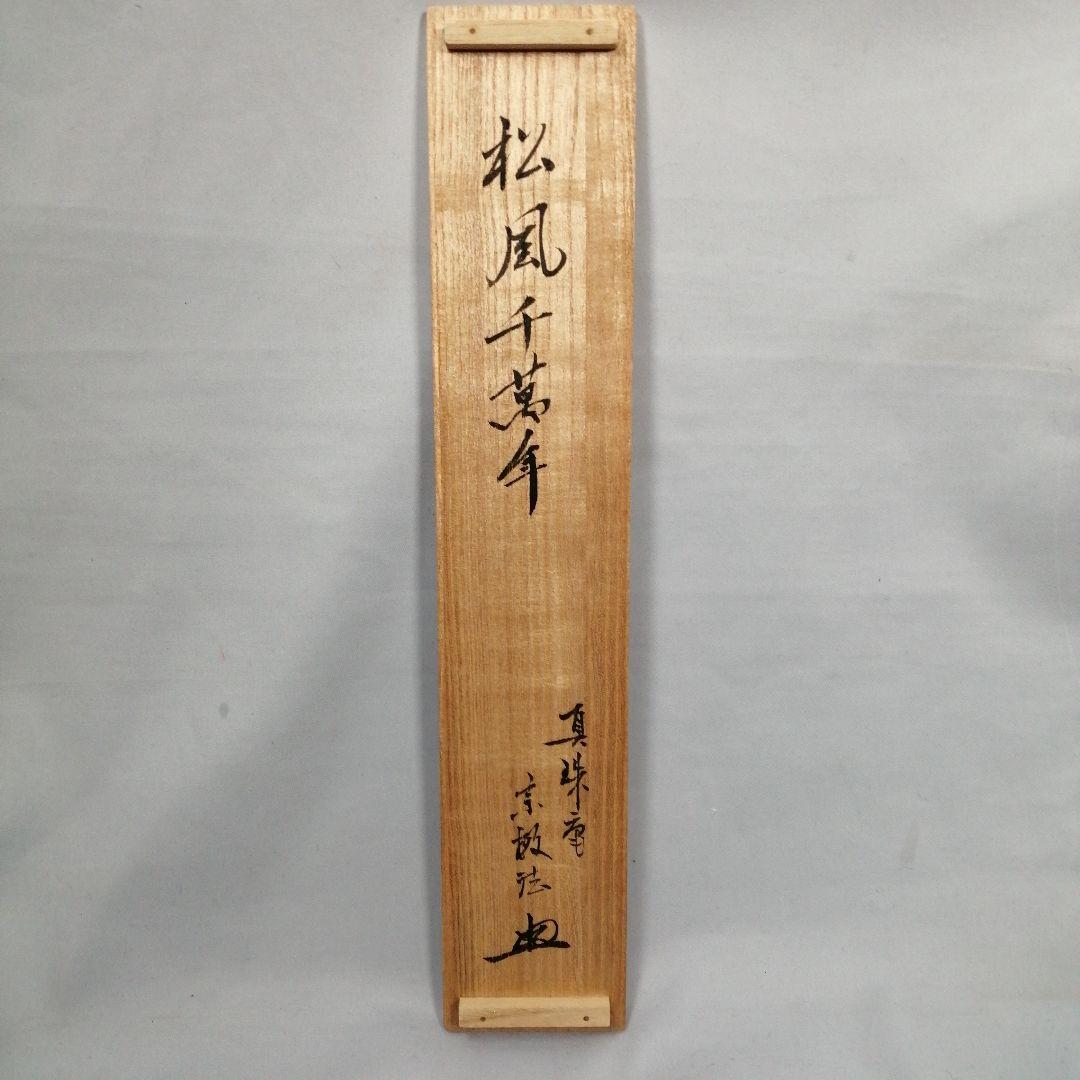 松風千萬年
真珠庵
宗敬誌